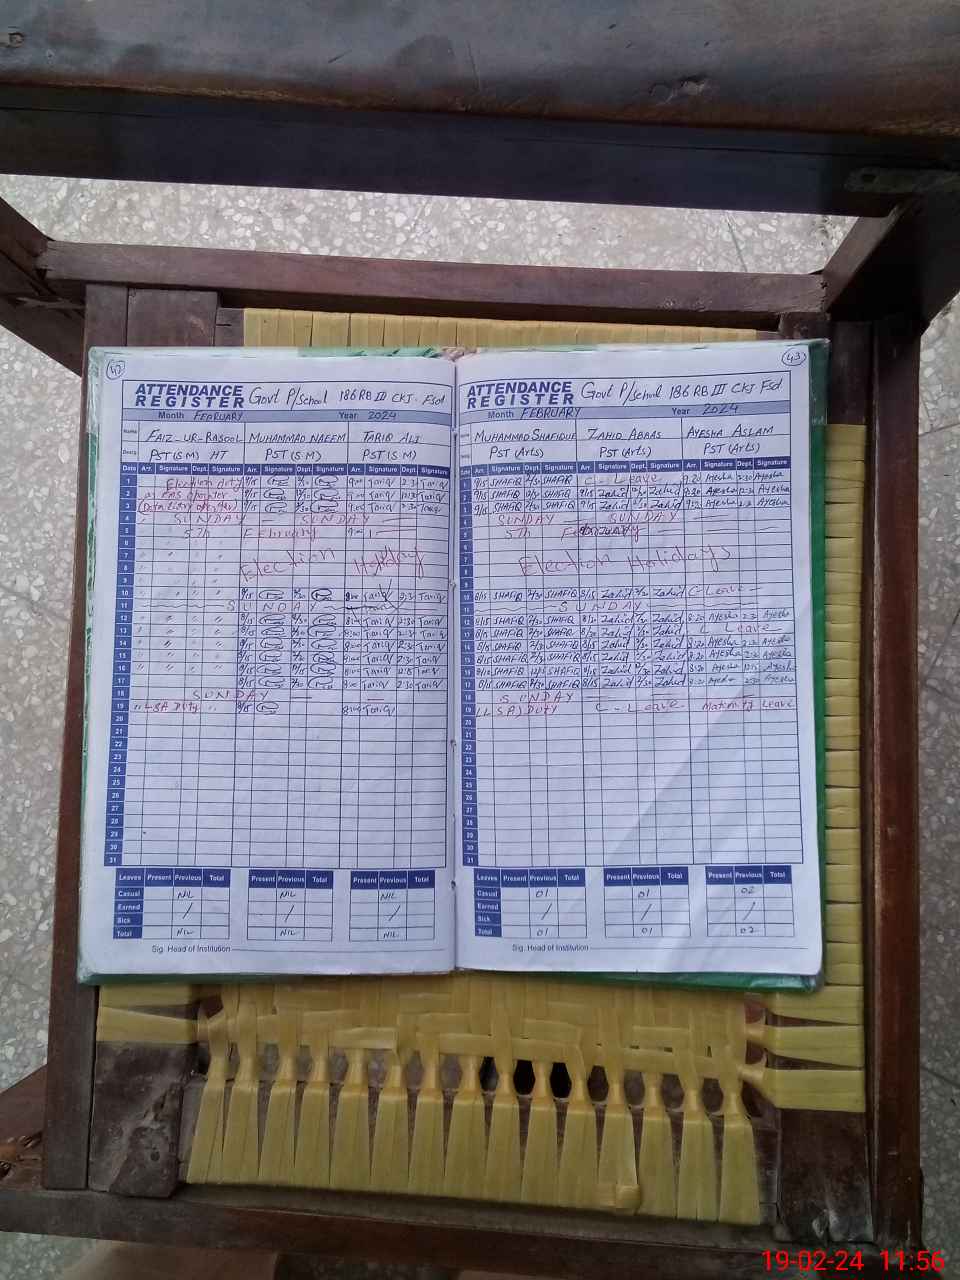 42
ATTENDANCE REGISTER Govt P/School 186 RB III CKJ. Fsd
Month FEBRUARY Year 2024
Name FAIZ-UR-RASOOL MUHAMMAD NAEEM TARIQ ALI
Desig. PST (S.M) HT PST (S.M) PST (S.M)
Date Arr. Signature Dept. Signature Arr. Signature Dept. Signature Arr. Signature Dept. Signature
1 Election duty 9/15 9:00 Tariq 2:30 Tariq
2 as EMS operator 9/15 Tariq Tariq
3 (Data Entry operator) 9/15 9:00 Tariq 2:30 Tariq
4 SUNDAY SUNDAY
5 5th February
6
7 Election Holiday
8
9
10 8/15 8:00 Tariq 2:30 Tariq
11 SUNDAY
12 8/15 8:00 Tariq 2:30 Tariq
13 8/15 8:00 Tariq 2:30 Tariq
14 8/15 8:00 Tariq 2:30 Tariq
15 8/15 8:00 Tariq 2:30 Tariq
16 8/15 8:00 Tariq Tariq
17 8/15 8:00 Tariq 2:30 Tariq
18 SUNDAY
19 LSA Duty 8/15 8:00 Tariq
20
21
22
23
24
25
26
27
28
29
30
31
Leaves Present Previous Total Present Previous Total Present Previous Total
Casual NIL NIL NIL
Earned / / /
Sick
Total NIL NIL NIL
Sig. Head of Institution
43
ATTENDANCE REGISTER Govt P/School 186 RB III CKJ Fsd
Month FEBRUARY Year 2024
Name MUHAMMAD SHAFIQUE ZAHID ABBAS AYESHA ASLAM
Desig. PST (Arts) PST (Arts) PST (Arts)
Date Arr. Signature Dept. Signature Arr. Signature Dept. Signature Arr. Signature Dept. Signature
1 9/15 SHAFIQ 2/30 SHAFIQ C - Leave 9:20 Ayesha 2:30 Ayesha
2 9/15 SHAFIQ SHAFIQ 9/15 Zahid Zahid Ayesha Ayesha
3 9/15 SHAFIQ 2/30 SHAFIQ 9/15 Zahid 2/30 Zahid Ayesha Ayesha
4 SUNDAY SUNDAY
5 5th February
6
7 Election Holidays
8
9
10 8/15 SHAFIQ 2/30 SHAFIQ 8/15 Zahid 2/30 Zahid C-Leave
11 SUNDAY
12 8/15 SHAFIQ 2/30 SHAFIQ Zahid Zahid 8:20 Ayesha Ayesha
13 8/15 SHAFIQ 2/30 SHAFIQ Zahid Zahid C Leave
14 8/15 SHAFIQ 2/30 SHAFIQ 8/15 Zahid 2/30 Zahid 8:20 Ayesha Ayesha
15 8/15 SHAFIQ 2/30 SHAFIQ 8/15 Zahid 2/30 Zahid 8:20 Ayesha Ayesha
16 SHAFIQ SHAFIQ 8/15 Zahid Zahid 8:20 Ayesha Ayesha
17 8/15 SHAFIQ 2/30 SHAFIQ 8/15 Zahid 2/30 Zahid Ayesha 2:30 Ayesha
18 SUNDAY
19 (LSA) Duty C - Leave Maternity Leave
20
21
22
23
24
25
26
27
28
29
30
31
Leaves Present Previous Total Present Previous Total Present Previous Total
Casual 01 01 02
Earned / / /
Sick
Total 01 01 02
Sig. Head of Institution
19-02-24 11:56